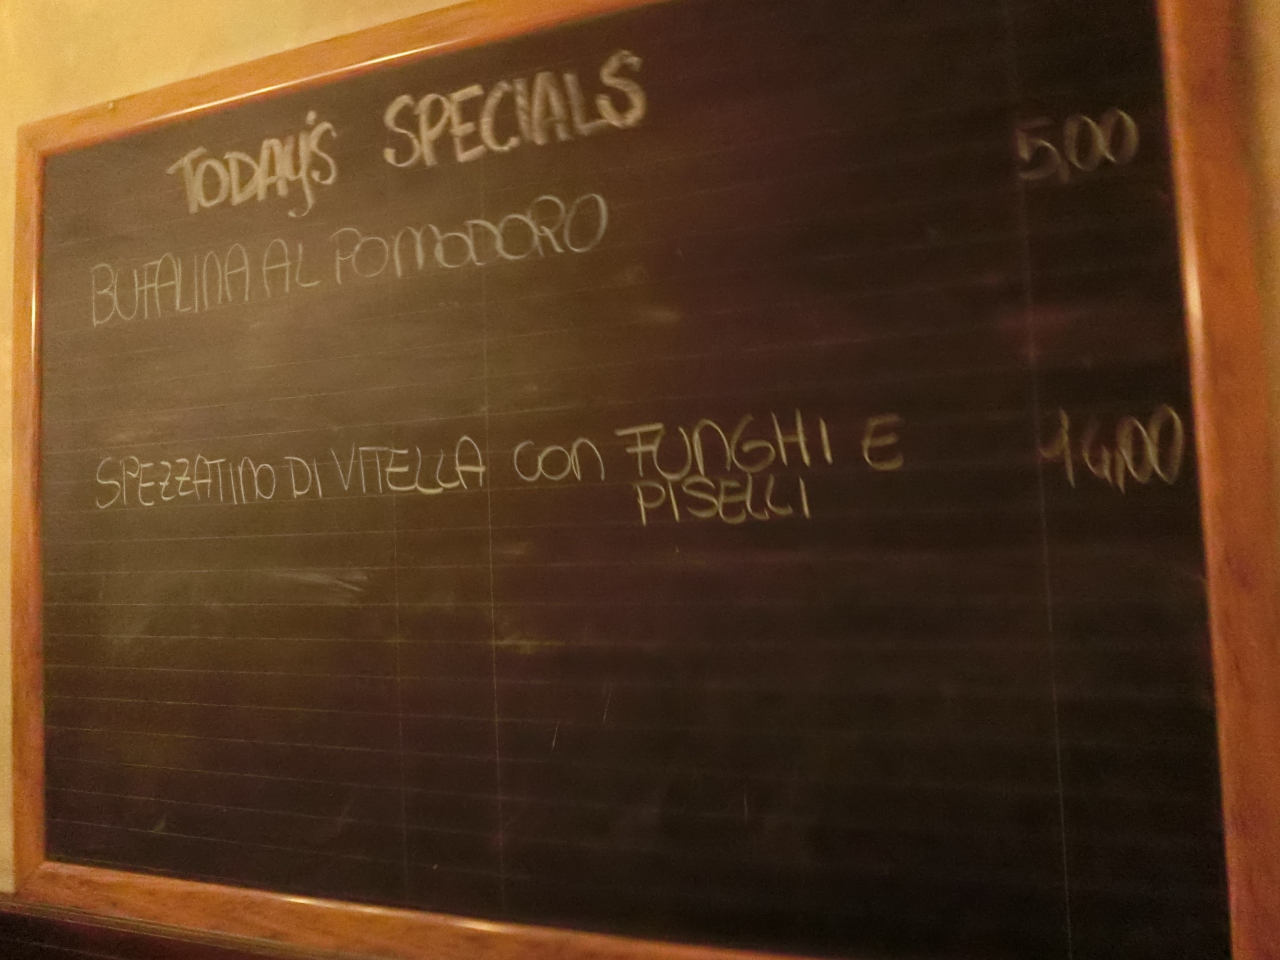 TODAY'S SPECIALS
BUFALINA AL POMODORO 5,00
SPEZZATINO DI VITELLA CON FUNGHI E 14,00
PISELLI